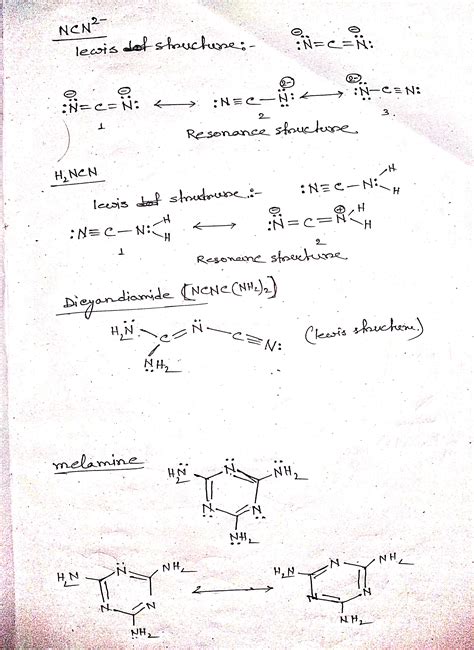 NCN²⁻
lewis dot structure:-
⊖ ⊖
:N̈=C=N̈:
⊖ ⊖
:N̈=C=N̈: ⟷ :N≡C—N̈: ⟷ :N̈—C≡N:
2- 2-
1 2 3.
Resonance structure
H₂NCN
lewis dot structure:-
:N≡C—N̈: H H
:N≡C—N̈: H H ⟷ ⊖ :N̈=C=N ⊕ H H
1 2
Resonance structure
Dicyandiamide [NCNC(NH₂)₂]
H₂N̈ C=N̈ C≡N: (lewis structure)
N̈H₂
melamine
H₂N̈ N̈ N̈H₂
N̈ N̈
N̈H₂
H₂N N NH₂ ⟷ H₂N N NH₂
N N N N
NH₂ NH₂